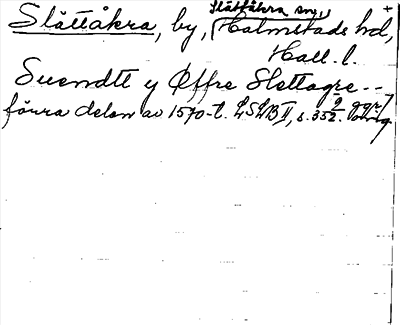 Slättåkra, by, Slättåkra sn, Halmstads hd,
Hall. l.
Suendtt y Øffre Slettagre--
förra delen av 1570-t. LSLB II, s. 352. 2 ggr